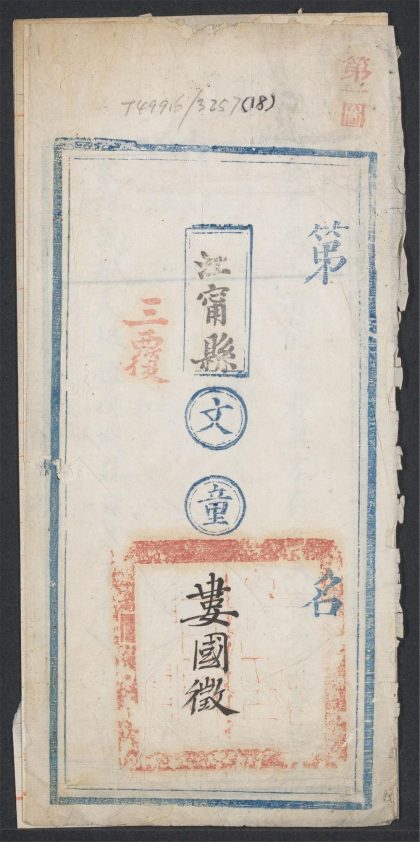 T4996/3257(18)
第一圖
第 名
江甯縣
文
童
婁國徵
三覆